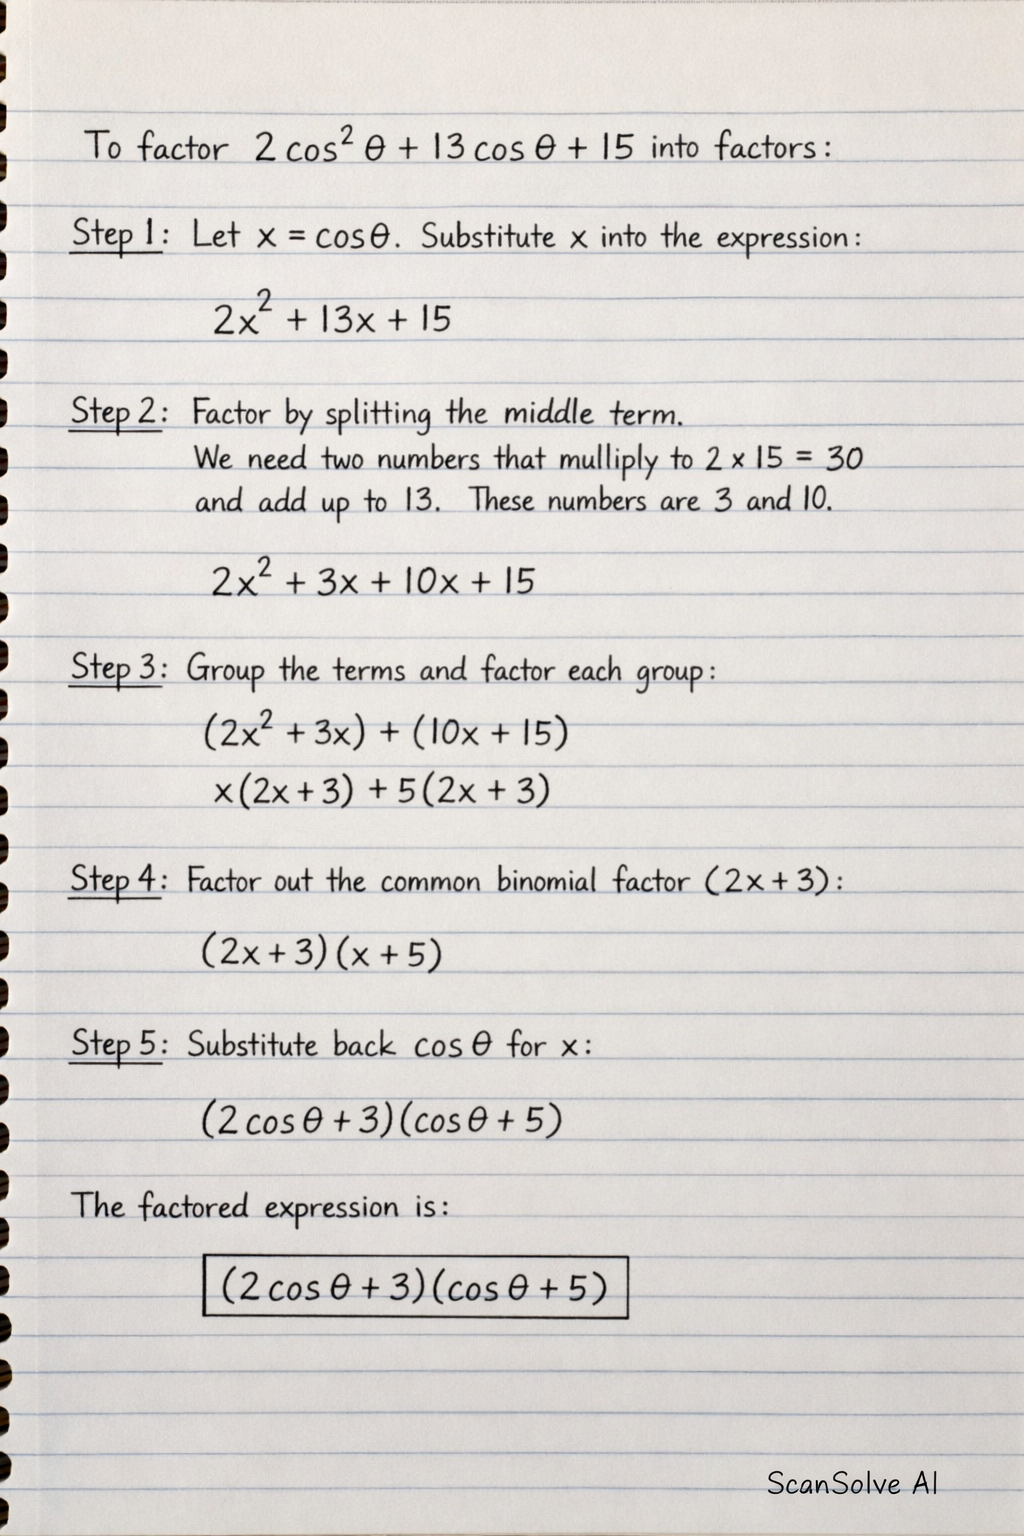 To factor 2 cos² θ + 13 cos θ + 15 into factors:
Step 1: Let x = cos θ. Substitute x into the expression:
2x² + 13x + 15
Step 2: Factor by splitting the middle term.
We need two numbers that mulliply to 2 x 15 = 30
and add up to 13. These numbers are 3 and 10.
2x² + 3x + 10x + 15
Step 3: Group the terms and factor each group:
(2x² + 3x) + (10x + 15)
x(2x + 3) + 5(2x + 3)
Step 4: Factor out the common binomial factor (2x + 3):
(2x + 3)(x + 5)
Step 5: Substitute back cos θ for x:
(2 cos θ + 3)(cos θ + 5)
The factored expression is:
(2 cos θ + 3)(cos θ + 5)
ScanSolve AI